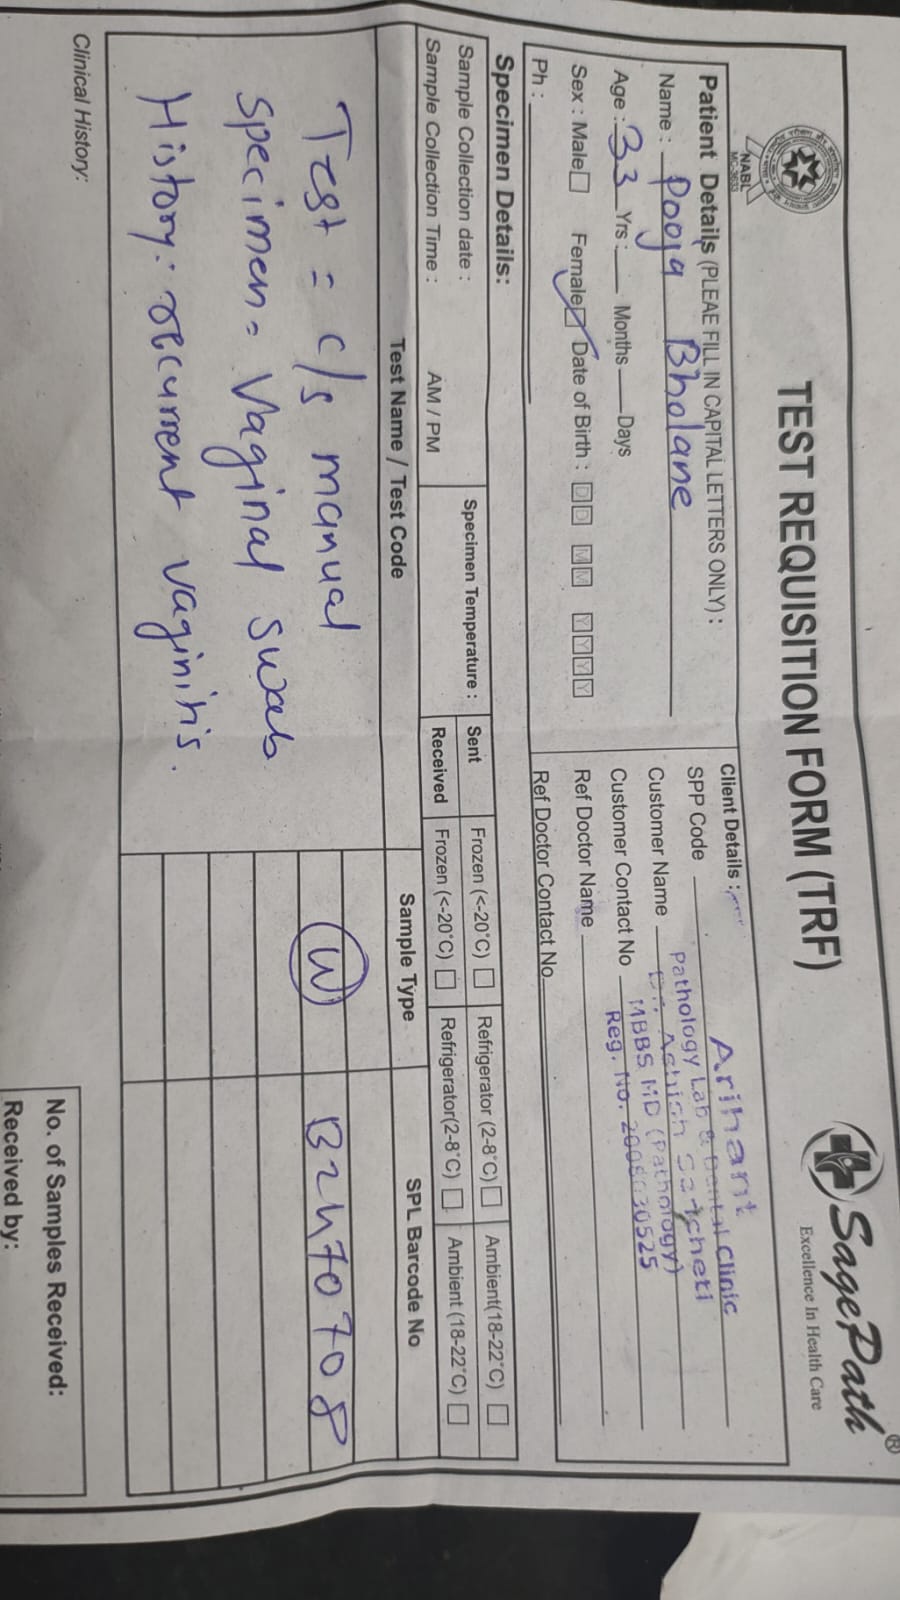 NABL
MC-3633
TEST REQUISITION FORM (TRF)
SagePath®
Excellence In Health Care
Patient Details (PLEAE FILL IN CAPITAL LETTERS ONLY) :
Name : Pooja Bholane
Age : 33 Yrs : Months Days
Sex : Male Female Date of Birth : D D M M Y Y Y Y
Ph :
Client Details :
SPP Code
Customer Name
Customer Contact No
Ref Doctor Name
Ref Doctor Contact No
Arihant
Pathology Lab & Dental Clinic
Dr. Ashish Sancheti
MBBS MD (Pathology)
Reg. No.
Specimen Details:
Sample Collection date :
Sample Collection Time : AM / PM
Specimen Temperature :
Sent Frozen (<-20°C) Refrigerator (2-8°C) Ambient(18-22°C)
Received Frozen (<-20°C) Refrigerator(2-8°C) Ambient (18-22°C)
Test Name / Test Code Sample Type SPL Barcode No
Test = c/s manual W B2470708
Specimen = Vaginal swab
History: reccurrent vaginitis.
Clinical History:
No. of Samples Received:
Received by: